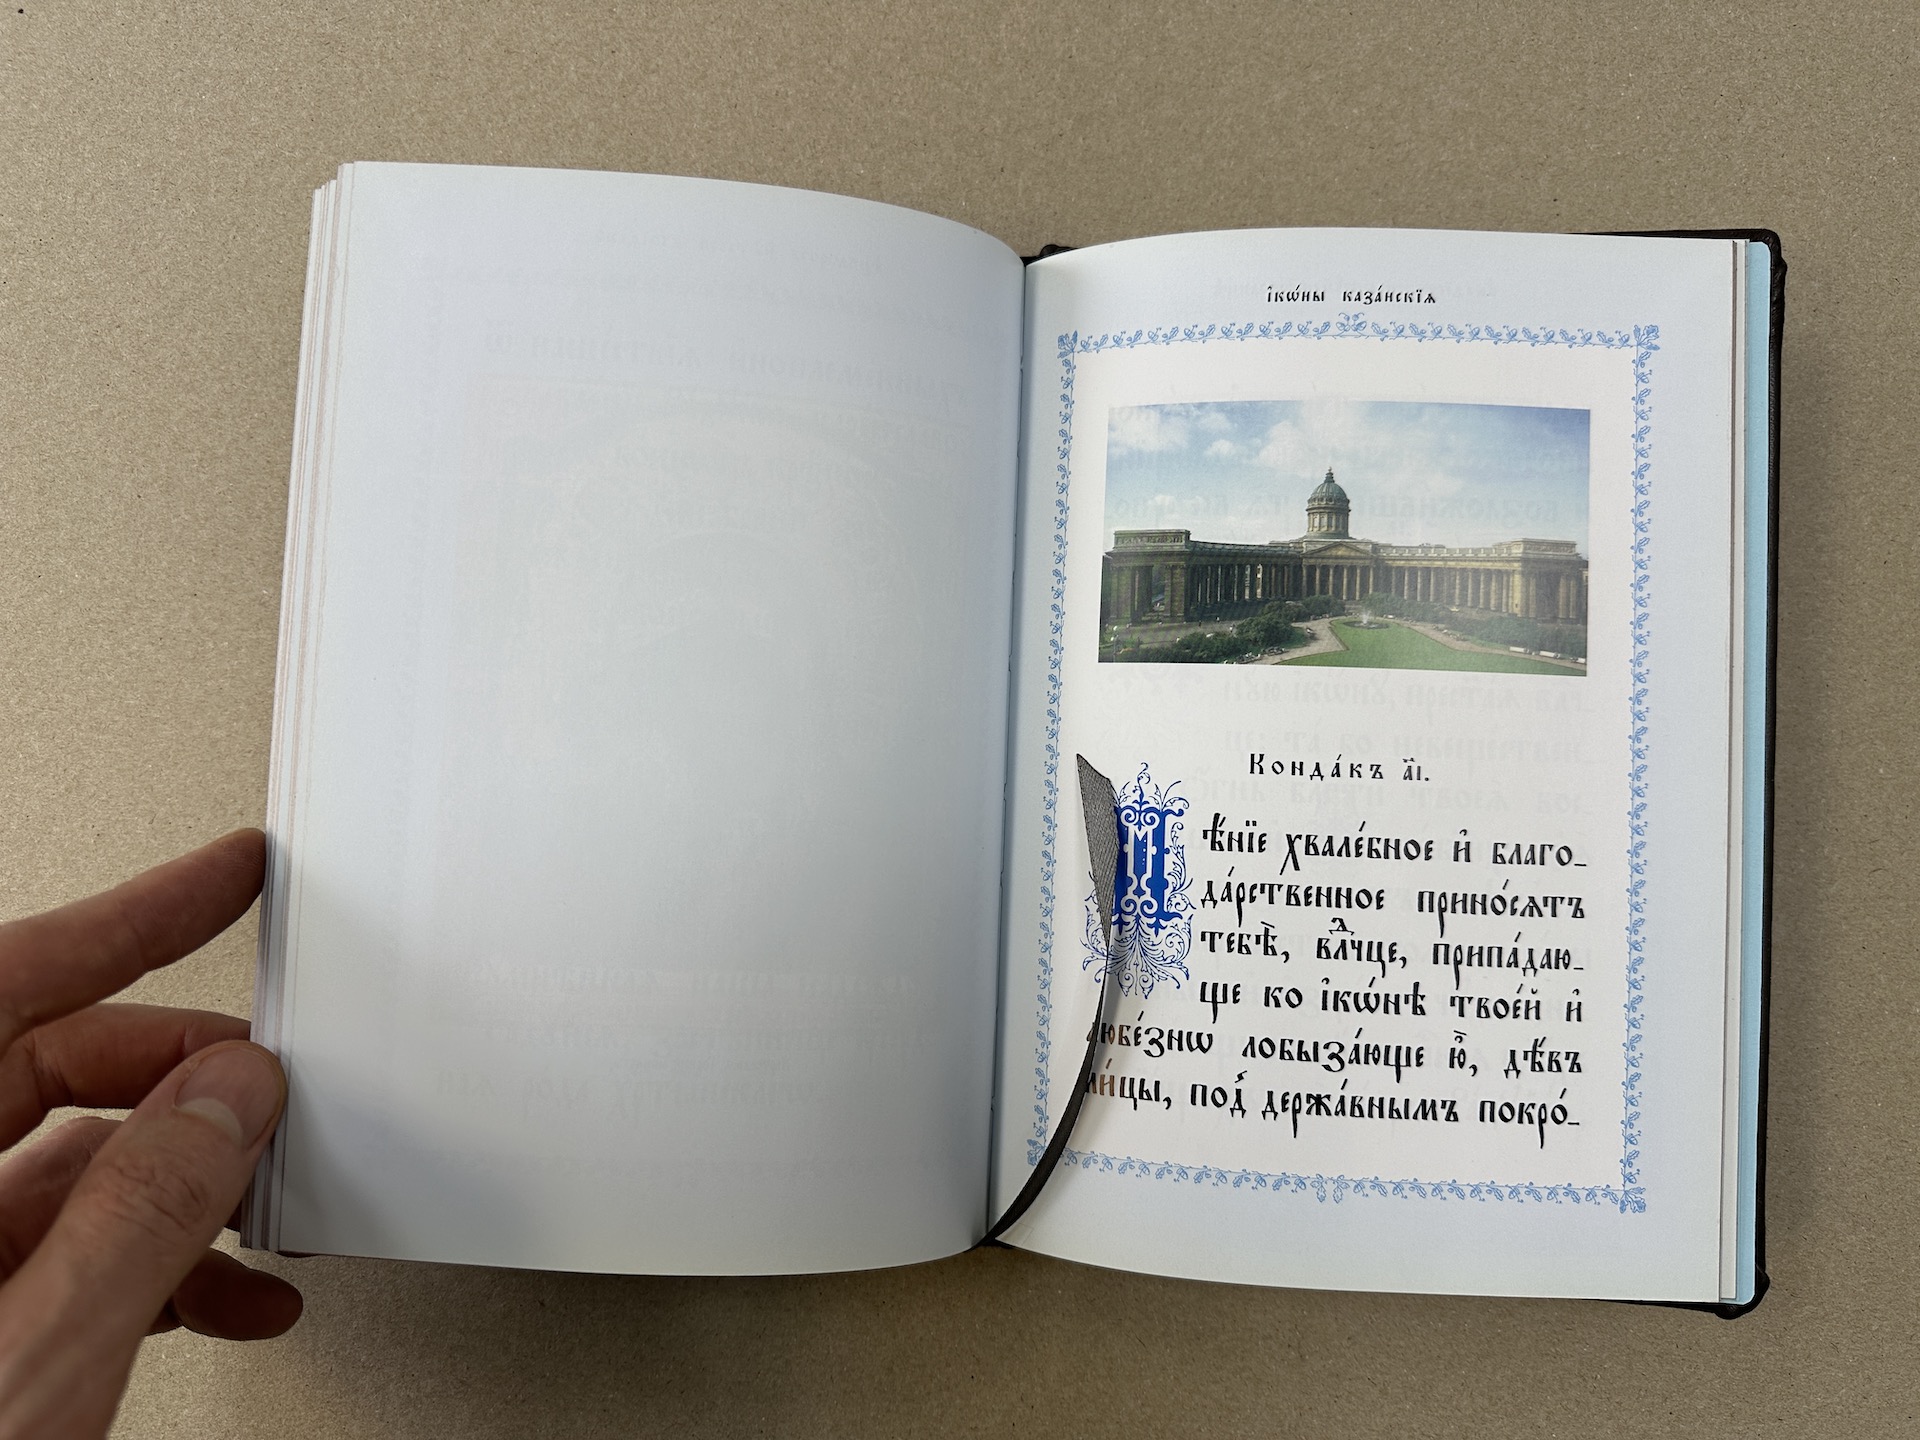 і҆кѡ́ны каза́нскїѧ
Конда́къ а҃і.
Пѣ́нїе хвале́бное и҆ благо_
да́рственное прино́сѧтъ
тебѣ̀, влⷣчце, припа́даю_
ще ко і҆кѡ́нѣ твое́й и҆
любе́знѡ лобыза́юще ю҆̀, дѣ́въ
ли́цы, под̾ держа́внымъ покро́_